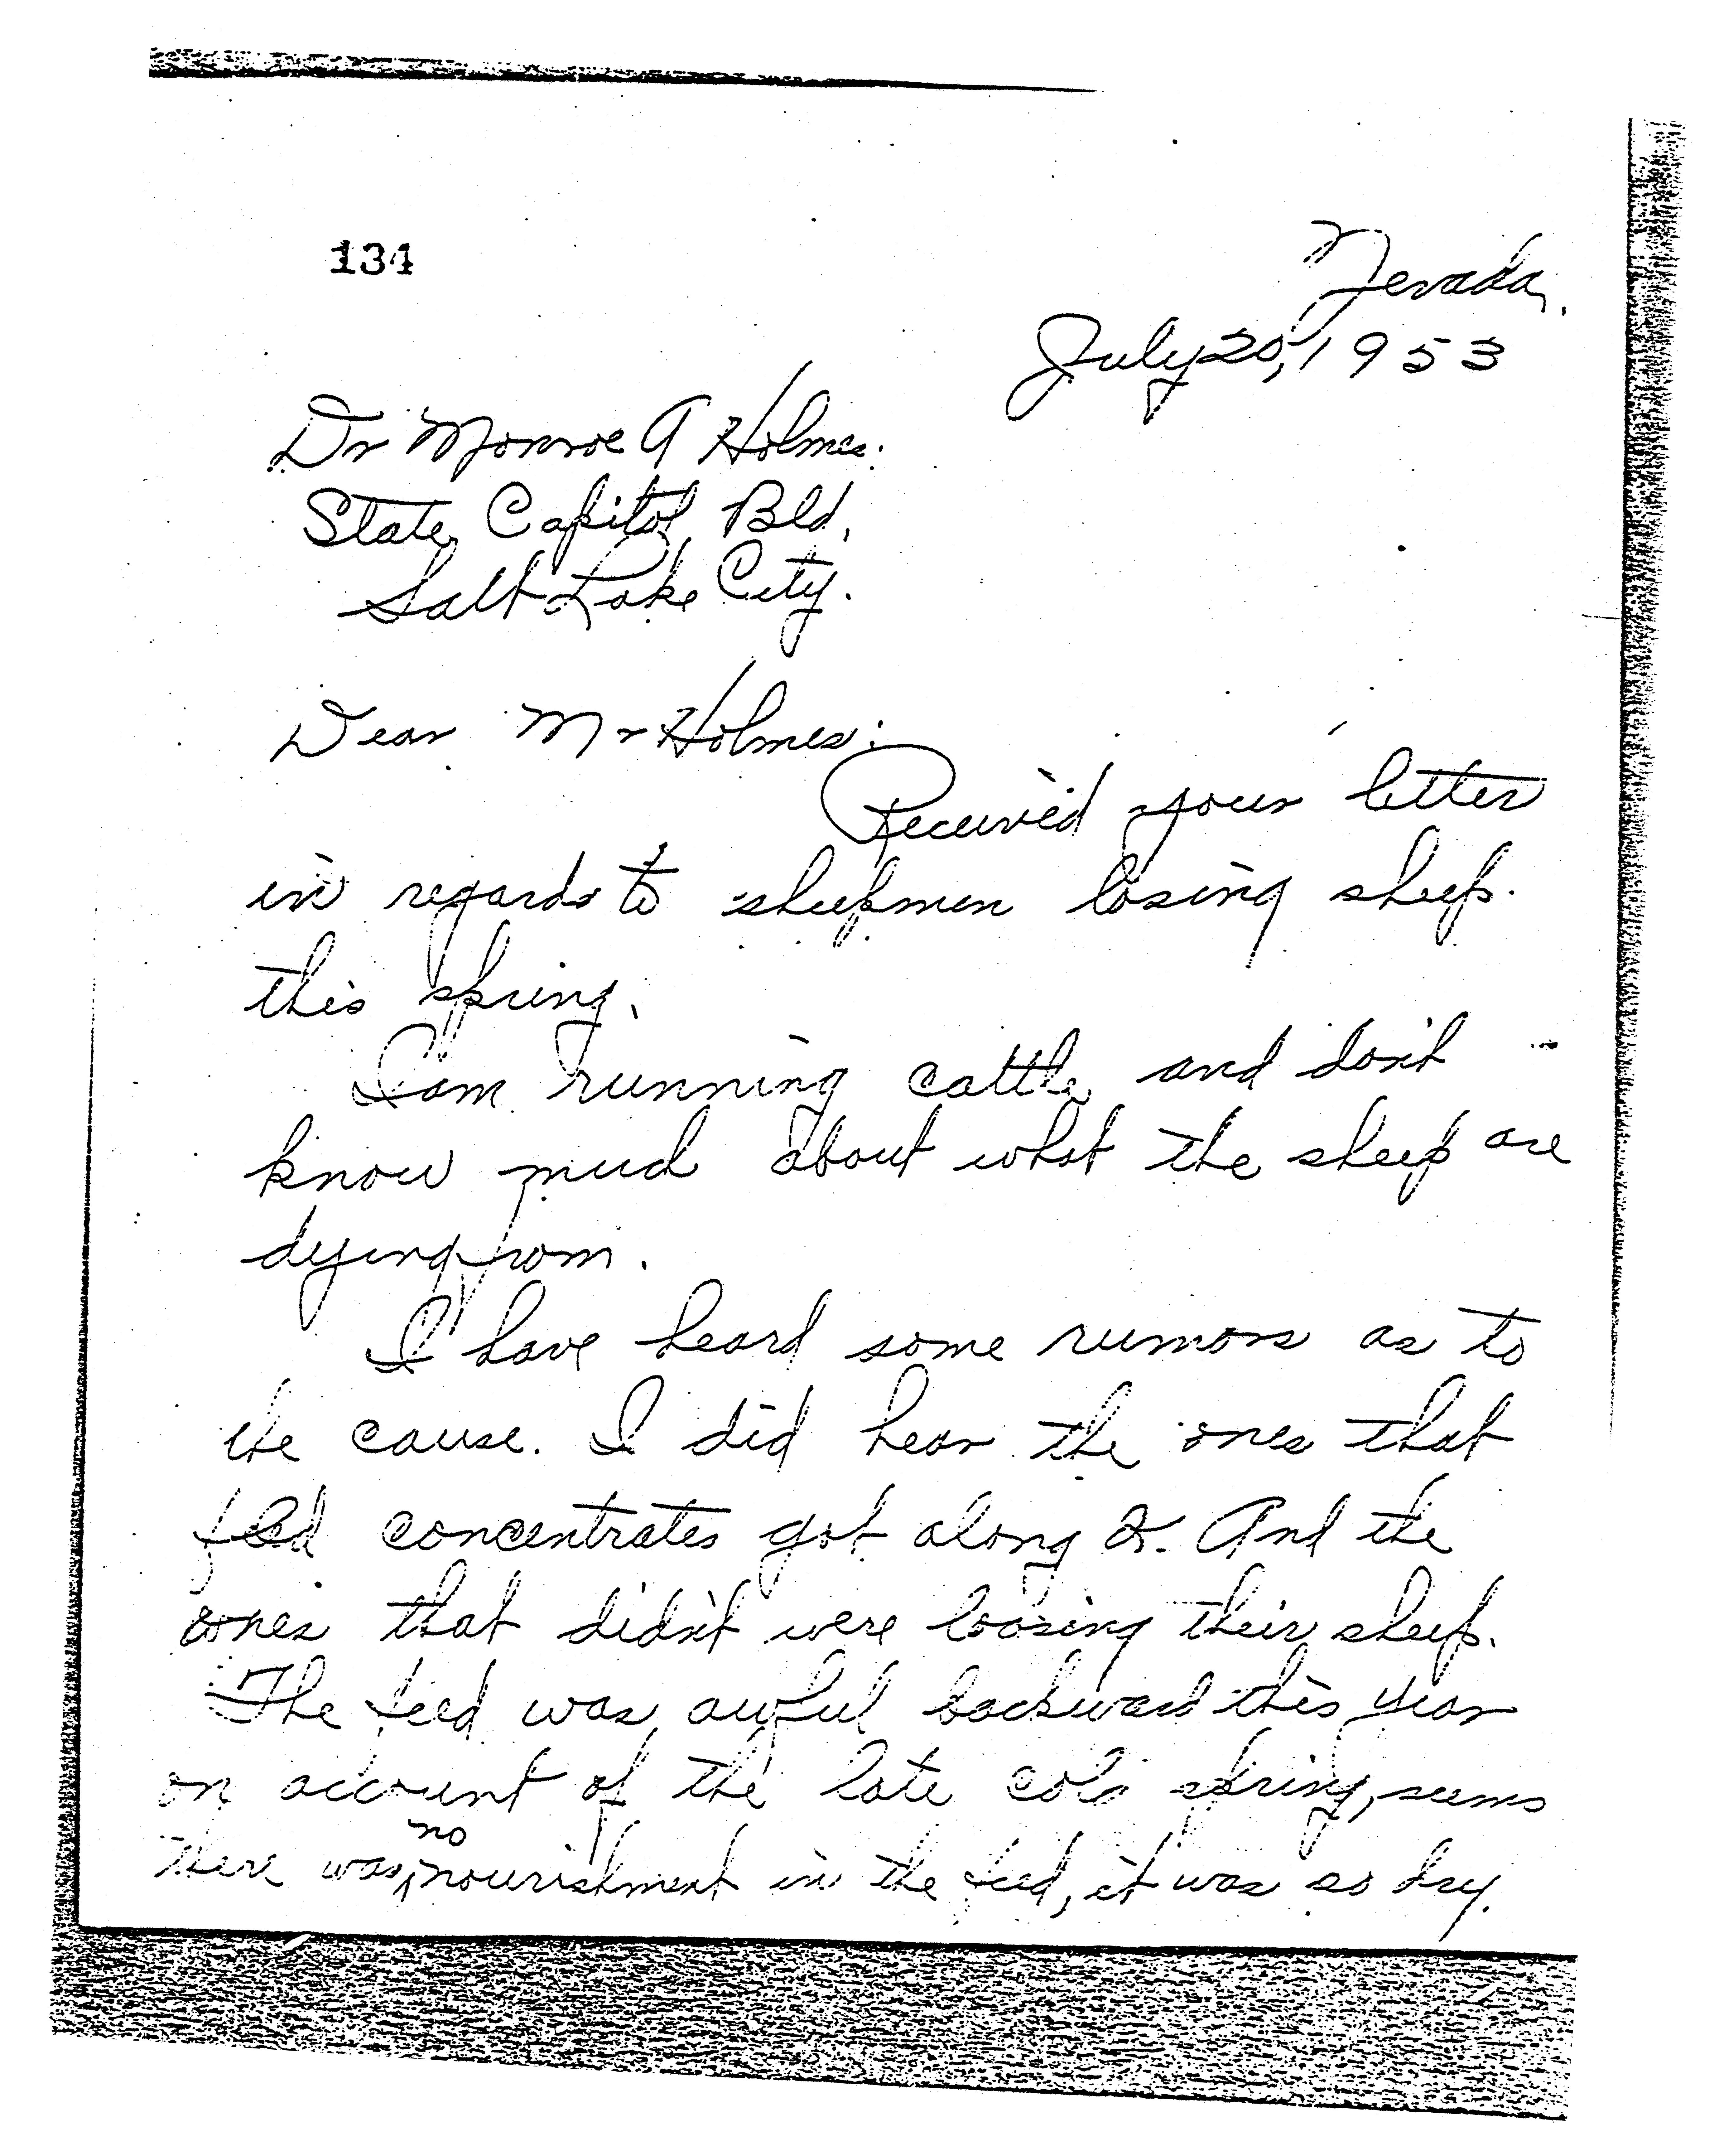 134
Nevada.
July 20, 1953
Dr Monroe A Holmes.
State Capitol Bld.
Salt Lake City.
Dear Mr Holmes:
Received your letter
in regards to sheepmen losing sheep
this spring.
I am running cattle and don't
know much about what the sheep are
dying from.
I have heard some rumors as to
the cause. I did hear the ones that
fed concentrates got along And the
ones that didn't were loosing their sheep.
The feed was awful backward this year
on account of the late cold spring, seems
there was no nourishment in the feed, it was so dry.